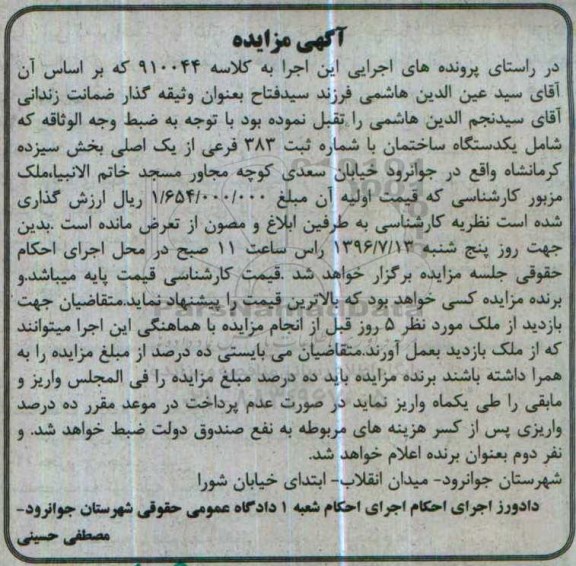 آگهی مزایده
در راستای پرونده های اجرایی این اجرا به کلاسه ۹۱۰۰۴۴ که بر اساس آن
آقای سید عین الدین هاشمی فرزند سیدفتاح بعنوان وثیقه گذار ضمانت زندانی
آقای سیدنجم الدین هاشمی را تقبل نموده بود با توجه به ضبط وجه الوثاقه که
شامل یکدستگاه ساختمان با شماره ثبت ۳۸۳ فرعی از یک اصلی بخش سیزده
کرمانشاه واقع در جوانرود خیابان سعدی کوچه مجاور مسجد خاتم الانبیا،ملک
مزبور کارشناسی که قیمت اولیه آن مبلغ ۱/۶۵۴/۰۰۰/۰۰۰ ریال ارزش گذاری
شده است نظریه کارشناسی به طرفین ابلاغ و مصون از تعرض مانده است .بدین
جهت روز پنج شنبه ۱۳۹۶/۷/۱۳ راس ساعت ۱۱ صبح در محل اجرای احکام
حقوقی جلسه مزایده برگزار خواهد شد .قیمت کارشناسی قیمت پایه میباشد.و
برنده مزایده کسی خواهد بود که بالاترین قیمت را پیشنهاد نماید.متقاضیان جهت
بازدید از ملک مورد نظر ۵ روز قبل از انجام مزایده با هماهنگی این اجرا میتوانند
که از ملک بازدید بعمل آورند.متقاضیان می بایستی ده درصد از مبلغ مزایده را به
همرا داشته باشند برنده مزایده باید ده درصد مبلغ مزایده را فی المجلس واریز و
مابقی را طی یکماه واریز نماید در صورت عدم پرداخت در موعد مقرر ده درصد
واریزی پس از کسر هزینه های مربوطه به نفع صندوق دولت ضبط خواهد شد. و
نفر دوم بعنوان برنده اعلام خواهد شد.
شهرستان جوانرود- میدان انقلاب- ابتدای خیابان شورا
دادورز اجرای احکام اجرای احکام شعبه ۱ دادگاه عمومی حقوقی شهرستان جوانرود-
مصطفی حسینی